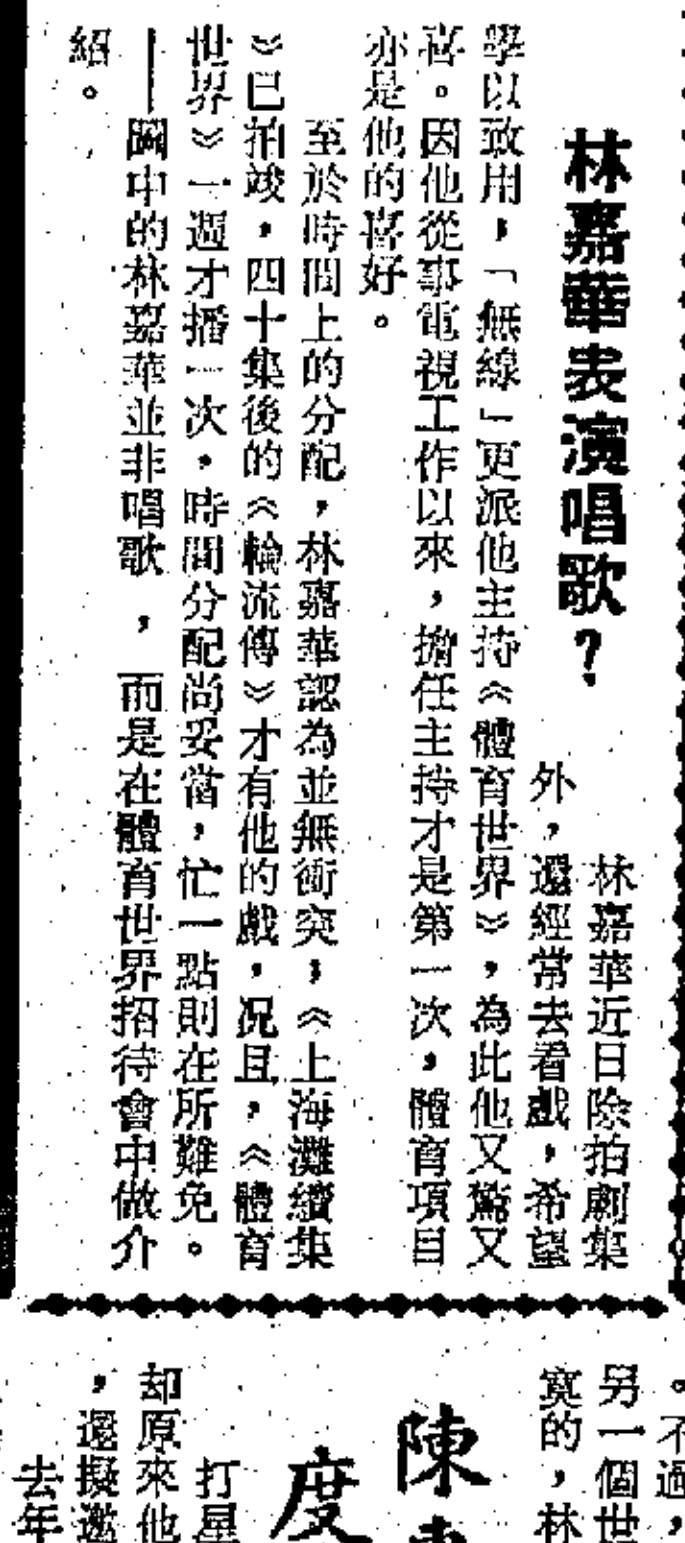 林嘉華表演唱歌？
林嘉華近日除拍劇集
外，還經常去看戲，希望
學以致用，「無線」更派他主持《體育世界》，為此他又驚又
喜。因他從事電視工作以來，擔任主持才是第一次，體育項目
亦是他的喜好。
至於時間上的分配，林嘉華認為並無衝突，《上海灘續集
》已拍竣，四十集後的《輪流傳》才有他的戲，况且，《體育
世界》一週才播一次，時間分配尚妥當，忙一點則在所難免。
——圖中的林嘉華並非唱歌，而是在體育世界招待會中做介
紹。
。不過，
另一個世
寞的，林
陳
度
打星
却原來他
，還擬邀
去年